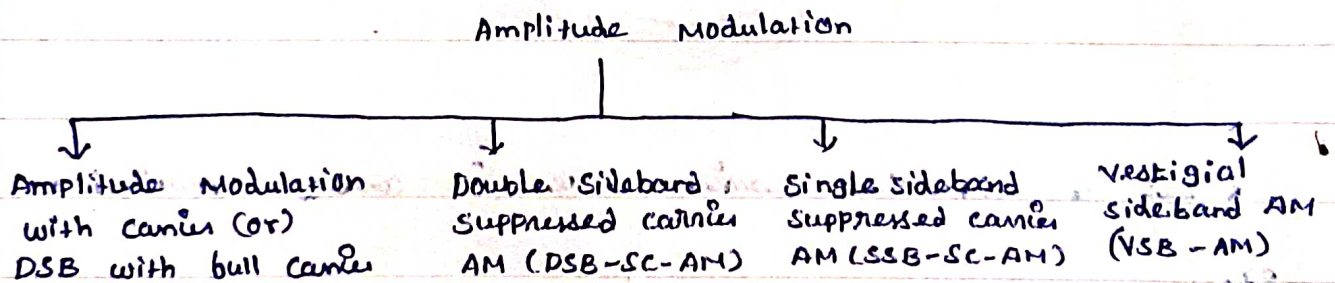 Amplitude Modulation
Amplitude Modulation
with carrier (or)
DSB with bull carrier
Double Sideband
suppressed carrier
AM (DSB-SC-AM)
Single sideband
suppressed carrier
AM (SSB-SC-AM)
vestigial
sideband AM
(VSB-AM)